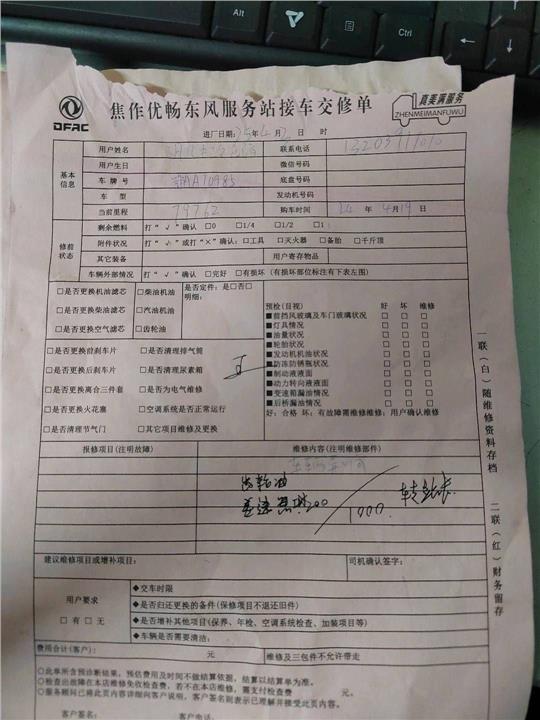 Alt
Ctrl
DFAC
焦作优畅东风服务站接车交修单
真美满服务
ZHENMEIMANFUWU
进厂日期: 年 4 月 2 日 时
基本信息
用户姓名
联系电话
用户生日
微信号码
车 牌 号
底盘号码
车 型
发动机号码
当前里程 79762
购车时间 24 年 4 月 19 日
修前状态
剩余燃料 打“√”确认 □0 □1/4 □1/2 □1
附件状况 打“√”或打“×”确认:□工具 □灭火器 □备胎 □千斤顶
其它装备
用户寄存物品
车辆外部情况 打“√”确认 □完好 □有损坏(有损坏部位标注有下表左图)
□是否更换机油滤芯 □柴油机油
□是否更换柴油滤芯 □汽油机油
□是否更换空气滤芯 □齿轮油
是否定件:是□否□
明细:
□是否更换前刹车片 □是否清理排气筒
□是否更换后刹车片 □是否清理尿素箱
□是否更换离合三件套 □是否为电气维修
□是否更换火花塞 □空调系统是否正常运行
□是否清理节气门 □其它项目维修及更换
预检(目视) 好 坏 维修
■前挡风玻璃及车门玻璃状况 □ □ □
■灯具情况 □ □ □
■油量状况 □ □ □
■轮胎状况 □ □ □
■发动机机油状况 □ □ □
■防冻防锈瓶状况 □ □ □
■制动液液面 □ □ □
■动力转向液液面 □ □ □
■变速箱漏油情况 □ □ □
■后桥漏油情况 □ □ □
好:合格 坏:有故障需维修维修:用户确认维修
报修项目(注明故障)
维修内容(注明维修部件)
1000
建议维修项目或增补项目:
司机确认签字:
用户要求
□有 □无
◆交车时限
◆是否归还更换的备件(保修项目不退还旧件)
◆是否增补其他项目(保养、年检、空调系统检查、加装项目等)
◆车辆是否需要清洁:
费用合计(客户): 元
维修及三包件不允许带走
○此单所含预诊断结果,预估费用及时间不做结算依据,结算以结算单为准。
○检查出故障在本店维修免收检查费,若不在本店维修,需支付检查费 元。
○服务顾问已将此页内容详细向客户说明,客户签名则表示已理解并接受此页内容。
客户签名: 客户电话:
一联(白)随维修资料存档
二联(红)财务留存